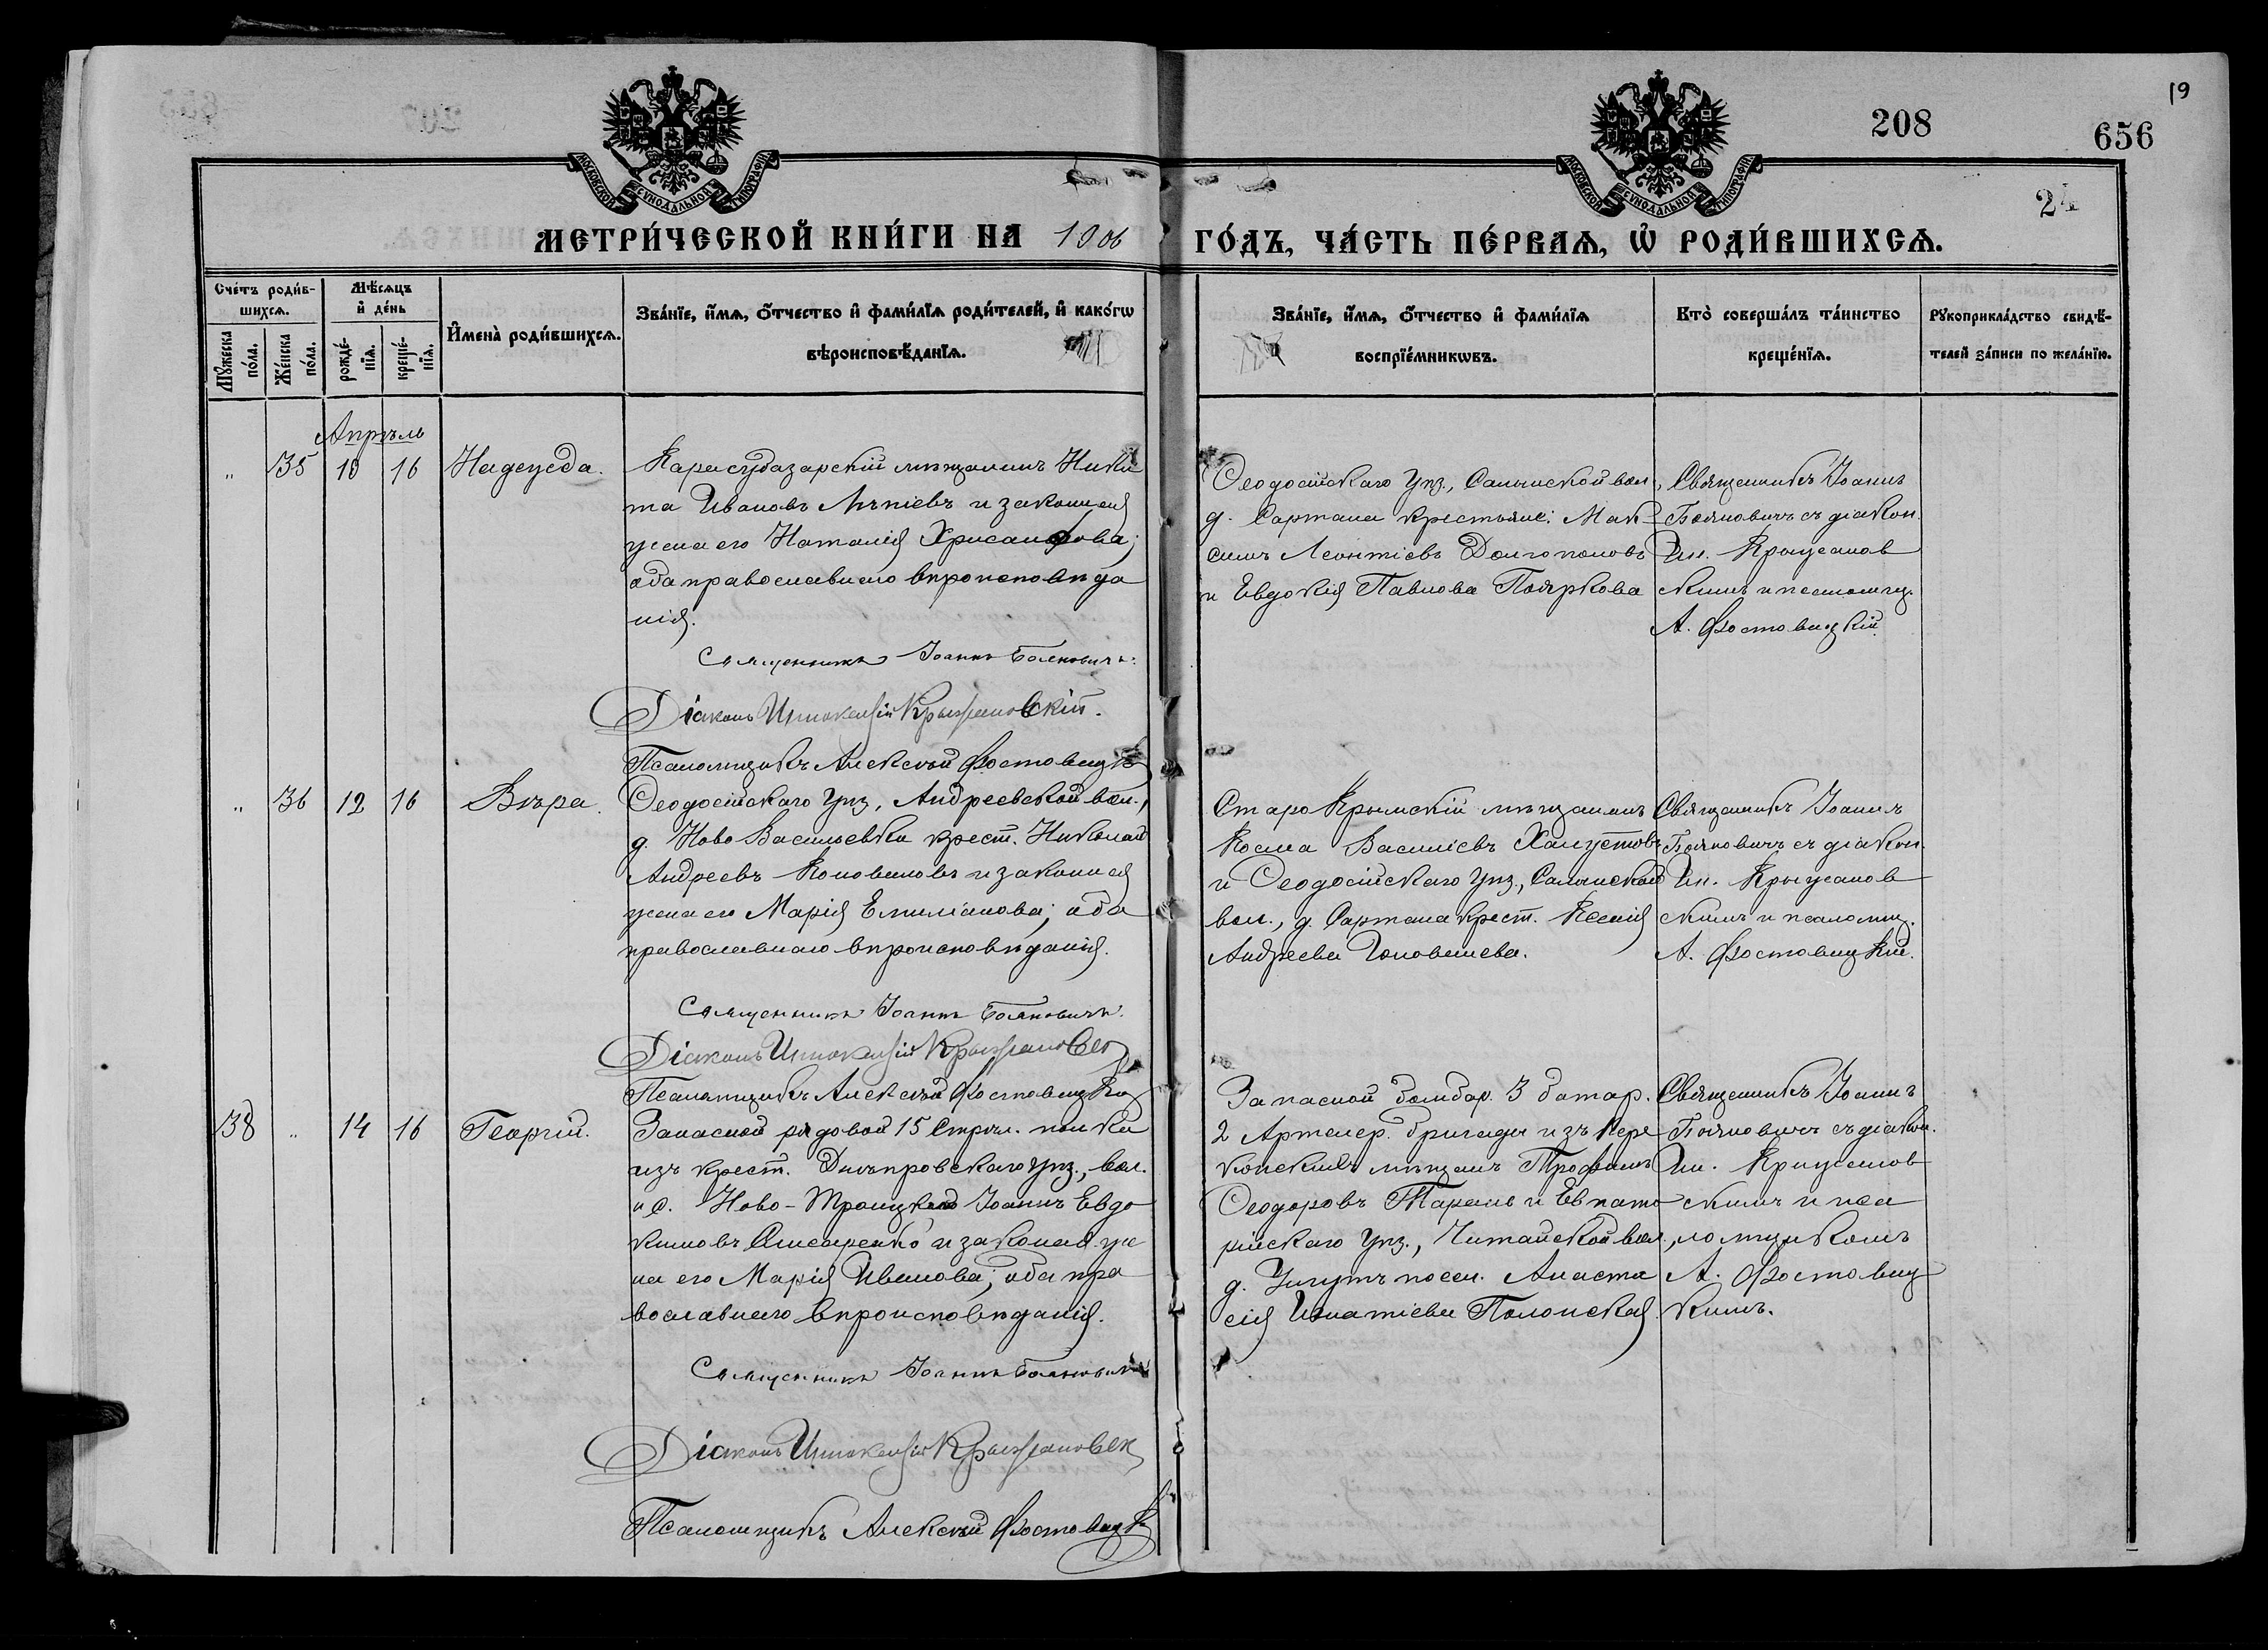 19
208
656
24
МОСКОВСКОЙ СѴНОДАЛЬНОЙ ТИПОГРАФІИ
МОСКОВСКОЙ СѴНОДАЛЬНОЙ ТИПОГРАФІИ
МЕТРИ́ЧЕСКОЙ КНИ́ГИ НА 1906 ГО́ДЪ, ЧА́СТЬ ПЕ́РВАѦ, Ѡ РОДИ́ВШИХСѦ.
Сче́тъ роди́в-
шихсѧ.
Мꙋ́жеска по́ла.
Же́нска по́ла.
Мѣ́сѧцъ
и҆ де́нь
рожде́-
нїѧ.
креще́-
нїѧ.
И҆мена̀ роди́вшихсѧ.
Зва́нїе, и҆́мѧ, ѻ҆́тчество и҆ фами́лїѧ роди́телей, и҆ како́гѡ
вѣроисповѣ́данїѧ.
Зва́нїе, и҆́мѧ, ѻ҆́тчество и҆ фами́лїѧ
воспрїе́мникѡвъ.
Кто̀ соверша́лъ та́инство
креще́нїѧ.
Рꙋкоприкла́дство свидѣ́-
телей за́писи по жела́нїю.
Апрѣль
" 35 10 16 Надежда.
Карасубазарскій мѣщанинъ Ники
та Ивановъ и законная
жена его Наталія Хрисанфова;
оба православнаго вѣроисповѣда
нія.
Священникъ Іоаннъ Бояновичъ.
Діаконъ Иннокентій Крыжановскій.
Псаломщикъ Алексѣй Фостовицкій
Ѳеодосійскаго уѣз., Салынской вол.,
д. Сартана крестьяне: Мак-
симъ Леонтіевъ Долгополовъ
и Евдокія Павлова Пояркова
Священникъ Іоаннъ
Бояновичъ съ діакон.
Ин. Крыжанов
скимъ и псаломщ.
А. Фостовицкій.
" 36 12 16 Вѣра.
Ѳеодосійскаго уѣз., Андреевской вол.,
д. Ново Васильевки крест. Николай
Андреевъ Коноваловъ и законная
жена его Марія Емиліанова; оба
православнаго вѣроисповѣданія.
Священникъ Іоаннъ Бояновичъ.
Діаконъ Иннокентій Крыжановск
Псаломщикъ Алексѣй Фостовицкій
Старо Крымскій мѣщанинъ
Косма Василіевъ Халустовъ
и Ѳеодосійскаго уѣз., Салынской
вол., д. Сартана крест. Ксенія
Андреева Коновалова.
Священникъ Іоаннъ
Бояновичъ съ діакон.
Ин. Крыжанов
скимъ и псаломщ.
А. Фостовицкій.
38 " 14 16 Георгій.
Запасной рядовой 15 Стрѣл. полка
изъ крест. Днѣпровскаго уѣз., вол.
и с. Ново-Троицкой Іоаннъ Евдо
кимовъ Слисаренко и законая же
на его Марія Иванова; оба пра
вославнаго вѣроисповѣданія.
Священникъ Іоаннъ Бояновичъ
Діаконъ Иннокентій Крыжановск
Псаломщикъ Алексѣй Фостовицк
Запасной бомбар. 3 батар.
2 Артилер. бригады изъ Пере
копскихъ мѣщанъ Трофимъ
Ѳеодоровъ Тарань и Евпато
рійскаго уѣз., Читайской вол.,
д. посел. Анаста
сія Игнатіева Полонская.
Священникъ Іоаннъ
Бояновичъ съ діакон.
Ин. Крыжанов
скимъ и пса
ломщикомъ
А. Фостовиц
кимъ.